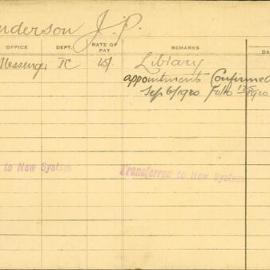 nderson J. P.
OFFICE DEPT. RATE OF PAY REMARKS DA
Messenger TC 45/- Library
appointment Confirmed
Sep 6/1920 Folio 1920
to New System Transferred to New System